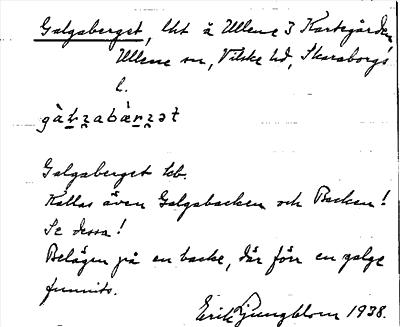 Galgaberget, lht å Ullene 3 Kartegården
Ullene sn, Vilske hd, Skaraborgs
l.
Galgaberget lcb.
Kallas även Galgabacken och Backen!
Se dessa!
Belägen på en backe, där förr en galge
funnits.
Erik Ljungblom 1938.